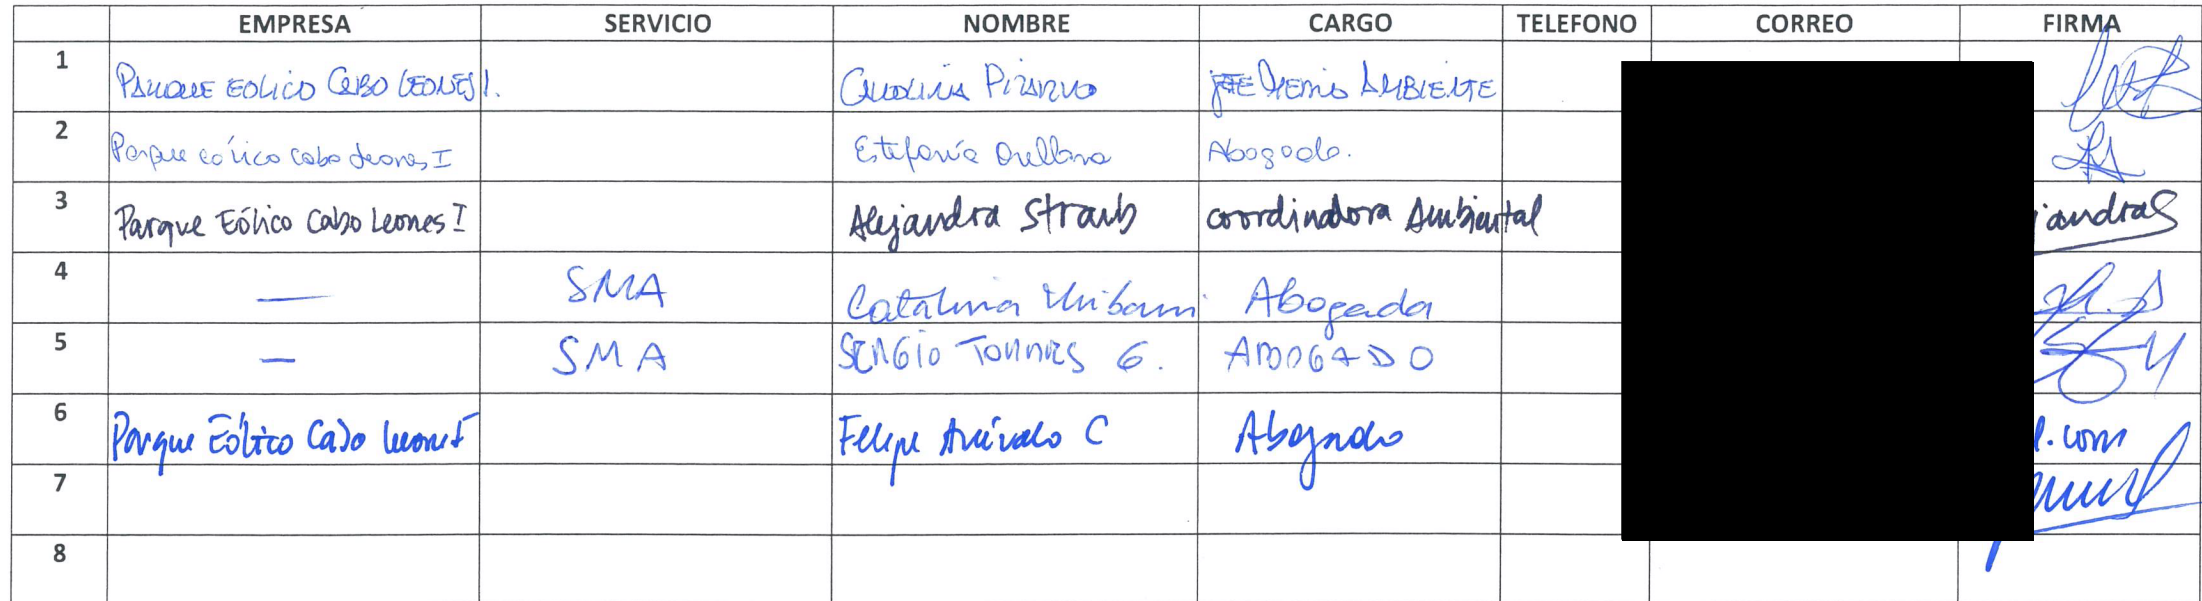 EMPRESA SERVICIO NOMBRE CARGO TELEFONO CORREO FIRMA
1 PARQUE EOLICO CABO LEONES I. Carolina Pizarro JEFE Medio AMBIENTE
2 Parque eólico cabo Leones I Estefanía Orellana Abogada.
3 Parque Eólico Cabo Leones I Alejandra Straub coordinadora Ambiental jandraS
4 — SMA Catalina Uribarri Abogada
5 — SMA SERGIO TORRES G. ABOGADO
6 Parque Eólico Cabo Leones I Felipe Arévalo C Abogado l.com
7
8